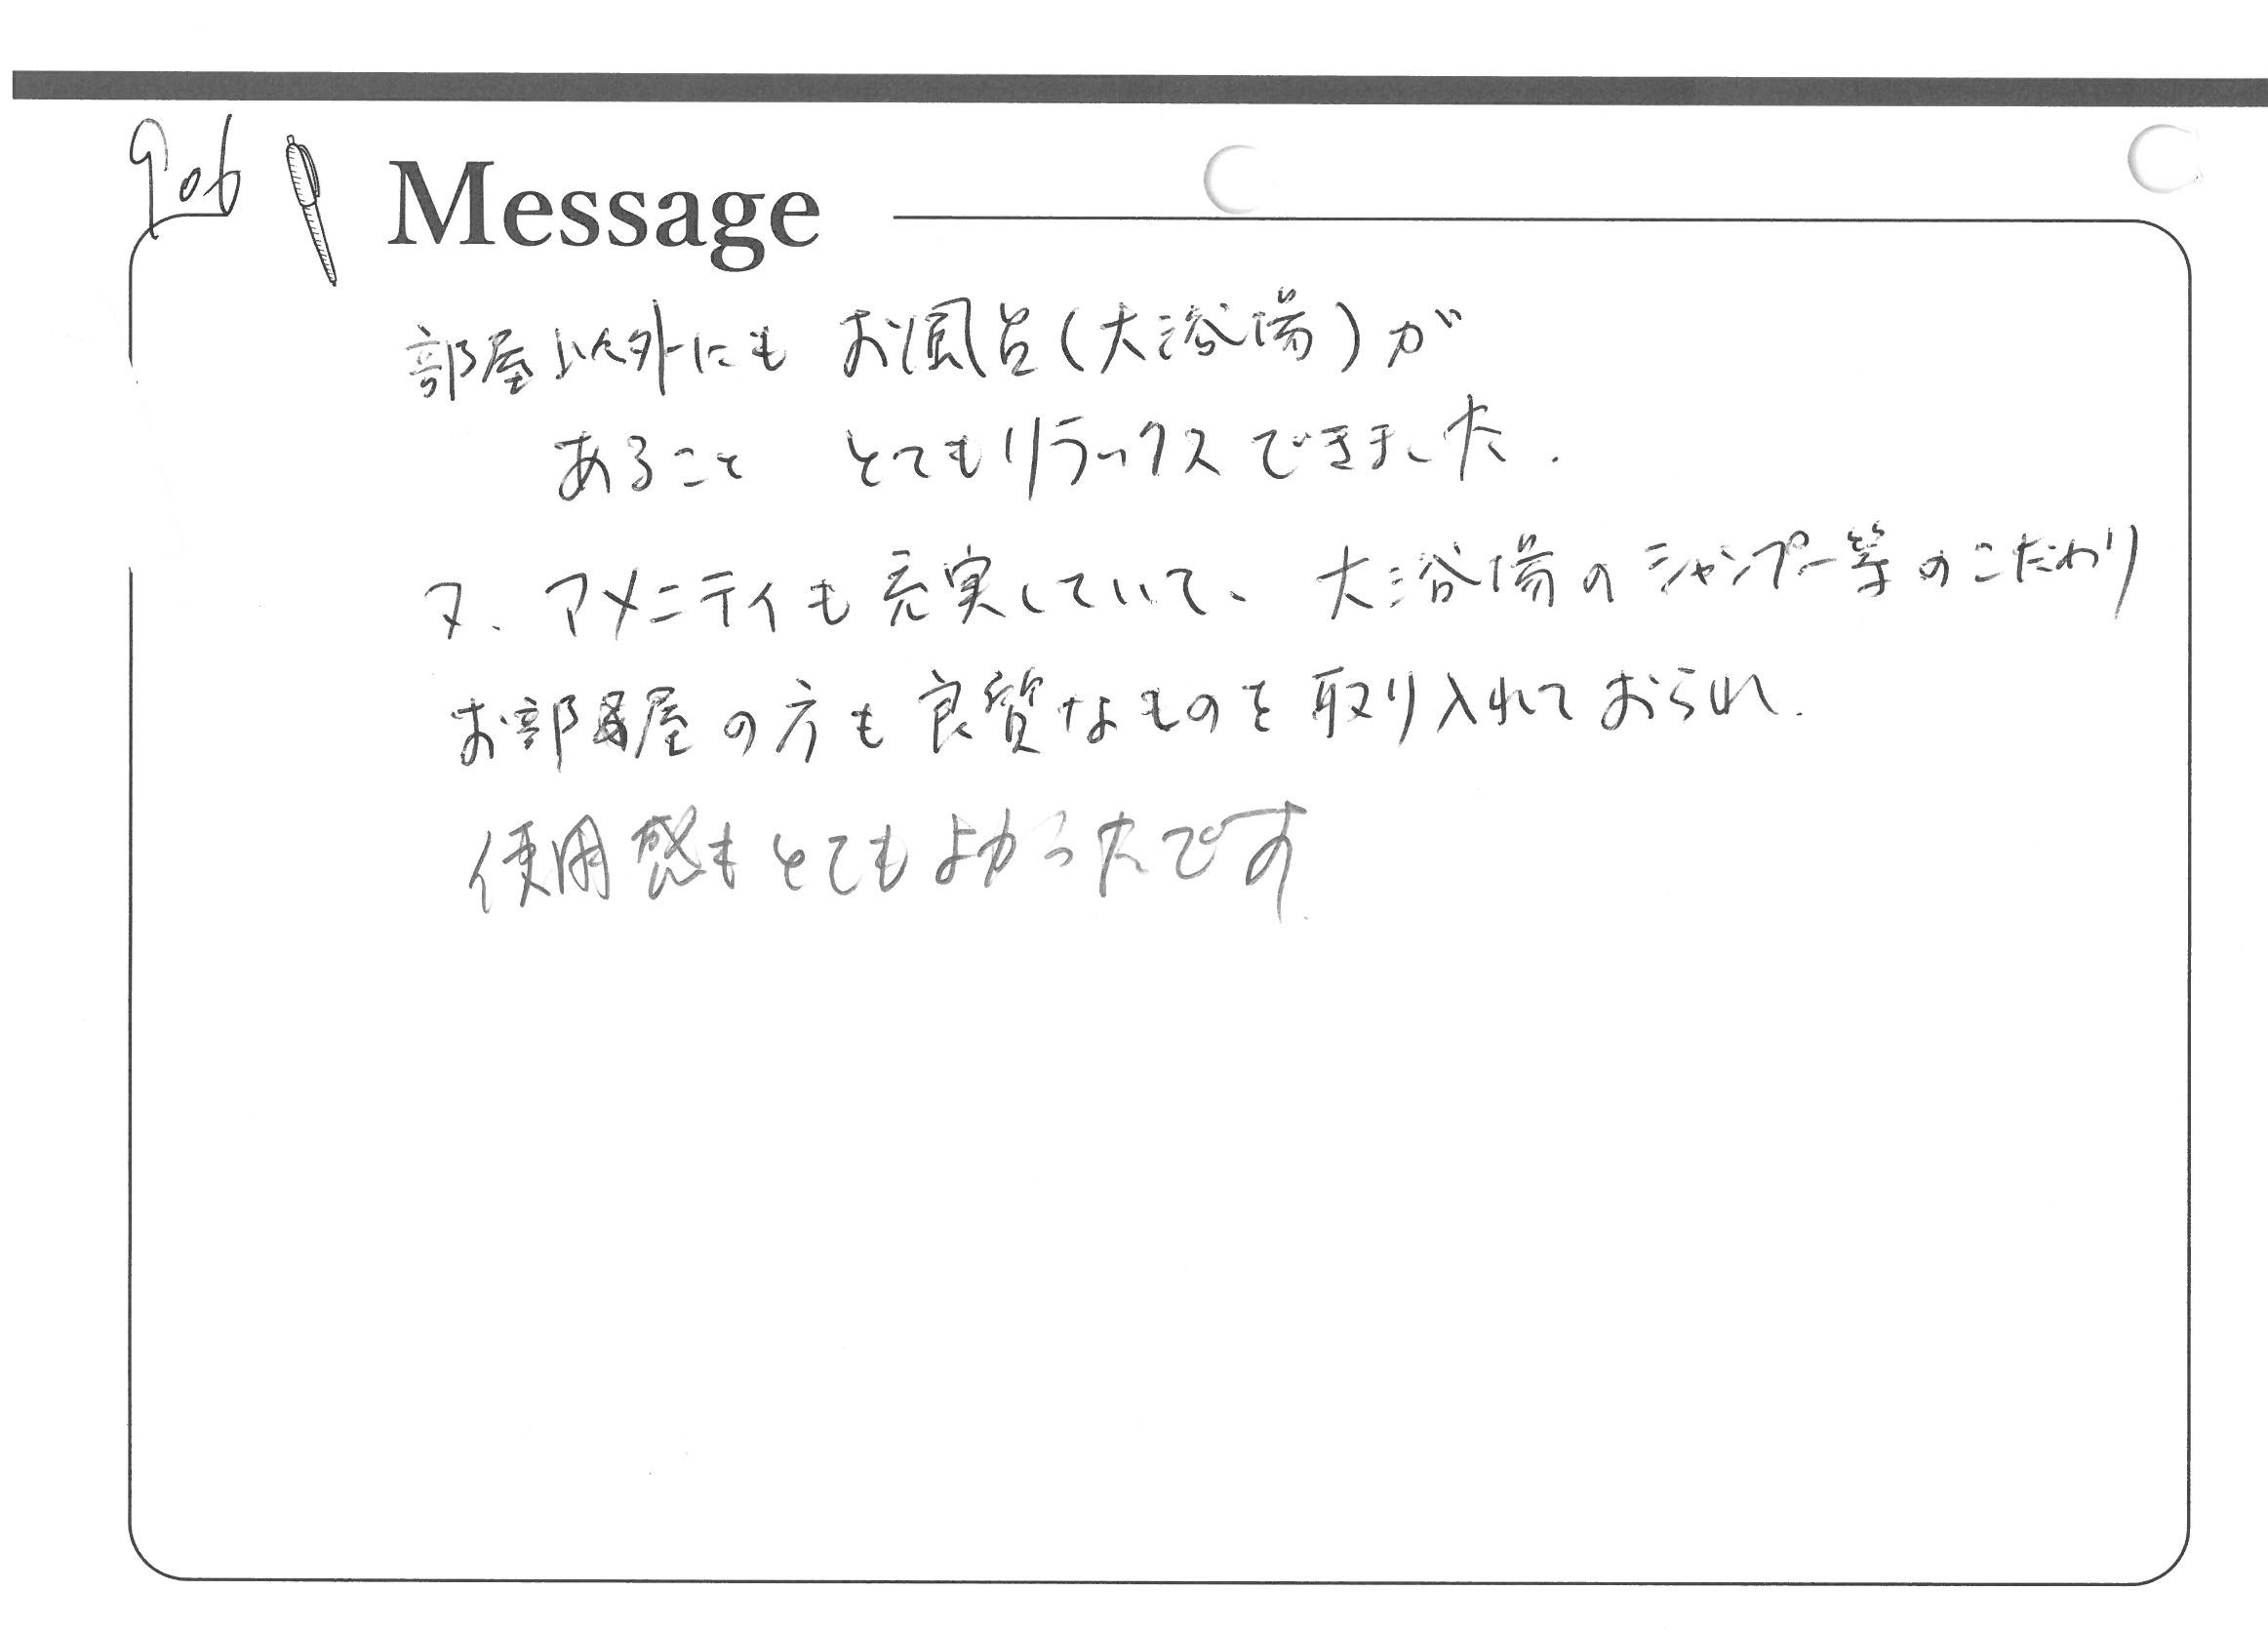 906
Message
部屋以外にもお風呂(大浴場)が
あること とてもリラックスできました.
又、アメニティも充実していて、大浴場のシャンプー等のこだわり
お部屋の方も良質なものを取り入れておられ.
使用感もとてもよかったです.